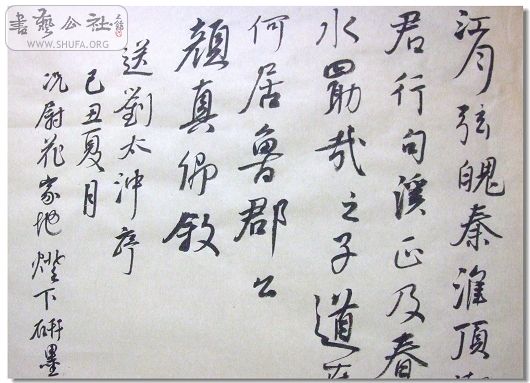 書藝公社
WWW.SHUFA.ORG
江月弦魄秦淮頂
君行句溪正及春
水勗哉之子道在
何居魯郡公
顏真卿敘
送劉太沖序
己丑夏月
况尉花家地燈下研墨